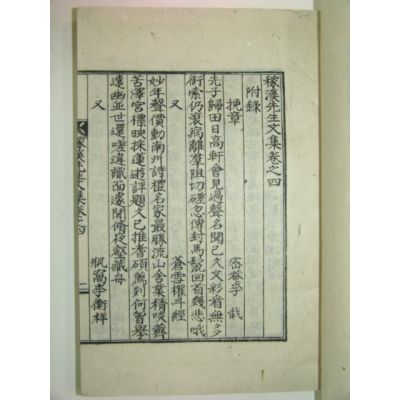 稼溪先生文集卷之四
附錄
挽章
密菴李栽
先子歸田日高軒會見過聲名聞已久文彩看無多
銜索仍衰病離羣阻切磋忽傳封馬鬣回首幾悲哦
又
蒼雪權斗經
妙年聲價動南州詩禮名家最勝流山舍業精咬薺
苦澤宮標映採蓮遊評題久已推耆碩薦剡何曾擧
遠幽並世還嗟違識面遽聞脩夜壑藏舟
又
瓶窩李衡祥
稼溪先生文集卷之四
一